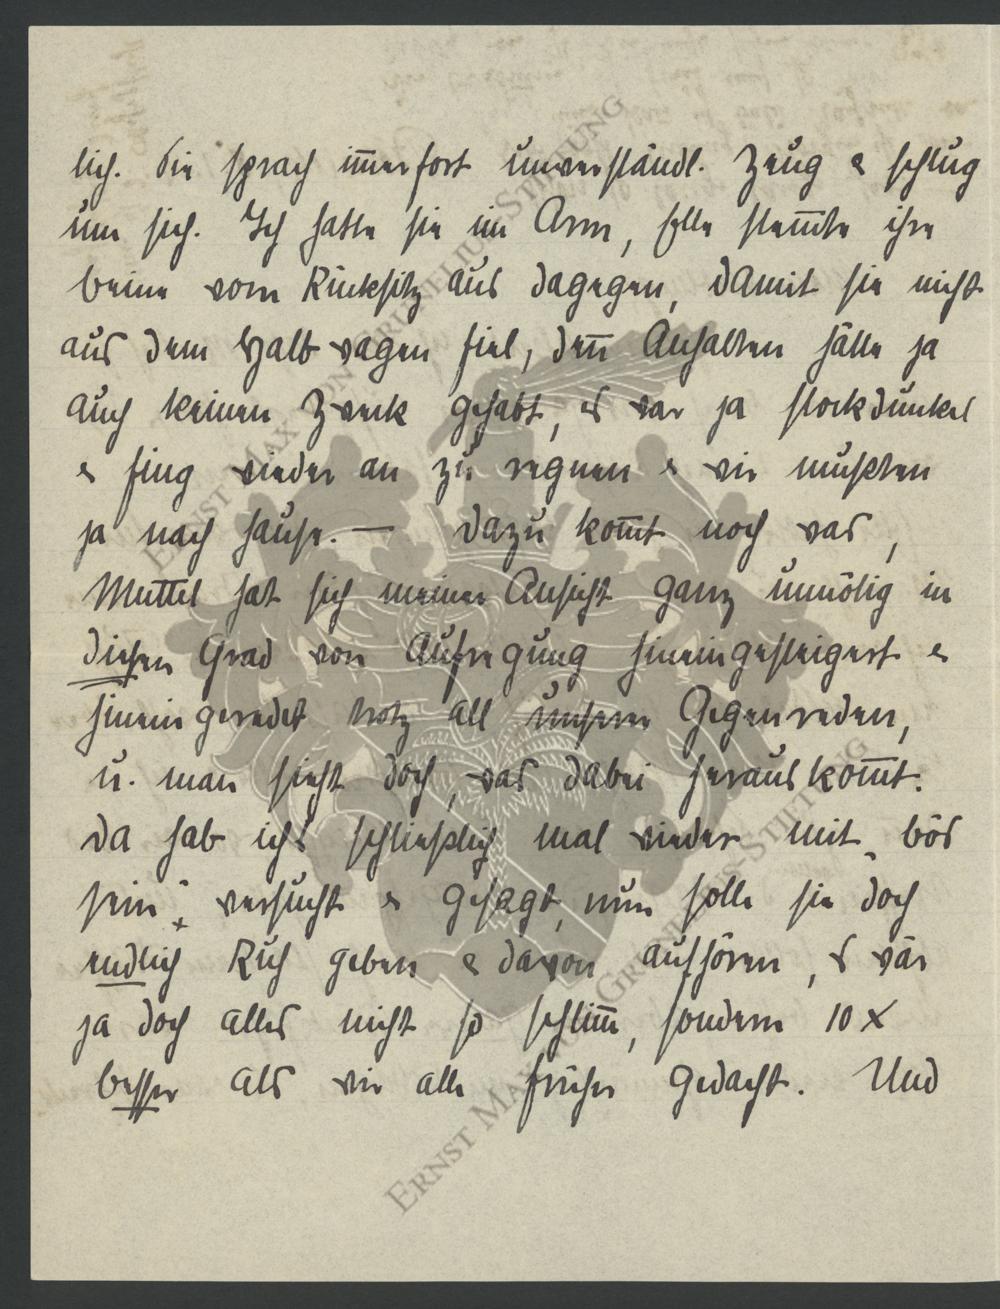 lich. Sie sprach im̅erfort unverständl. Zeug & schlug
um sich. Ich hatte sie im Arm, Elle stem̅te ihre
Beine vom Rücksitz aus dagegen, damit sie nicht
aus dem Halbwagen fiel, den̅ Anhalten hätte ja
auch keinen Zweck gehabt, es war ja stockdunkel
& fing wieder an zu regnen & wir mußten
ja nach Hause. — Dazu kom̅t noch was,
Muttel hat sich meiner Ansicht ganz unnötig in
diesen Grad von Aufregung hineingesteigert &
hineingeredet trotz all unserer Gegenreden,
u. man sieht doch, was dabei herauskom̅t.
Da hab ichs schließlich mal wieder mit „bös
sein“ versucht & gesagt, nun solle sie doch
endlich Ruh geben & davon aufhören, es wär
ja doch alles nicht so schlim̅, sondern 10 x
besser als wir alle früher gedacht. Und
ERNST MAX VON GRUNELIUS-STIFTUNG
ERNST MAX VON GRUNELIUS-STIFTUNG